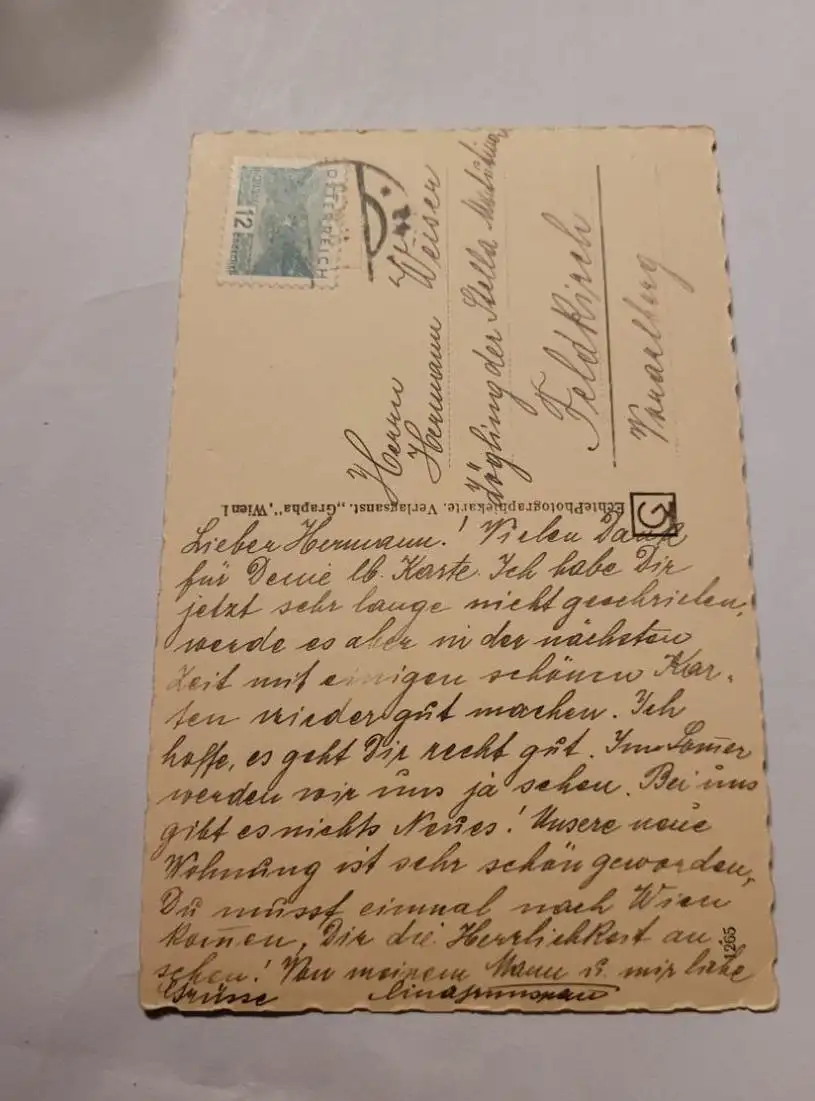 Lieber Hermann! Vielen Dank
für Deine lb. Karte. Ich habe Dir
jetzt sehr lange nicht geschrieben,
werde es aber in der nächsten
Zeit mit einigen schönen Kar-
ten wieder gut machen. Ich
hoffe, es geht Dir recht gut. Im Som̅er
werden wir uns ja sehen. Bei uns
gibt es nichts Neues! Unsere neue
Wohnung ist sehr schön geworden,
Du musst einmal nach Wien
kom̅en, Dir die Herrlichkeit an
sehen! Von meinem Mann u. mir liebe
Grüsse
Echte Photographiekarte. Verlagsanst. „Grapha", Wien I
G
1265
ÖSTERREICH
12 GROSCHEN
Herrn
Hermann Weiser
Zögling der Stella Matutina
Feldkirch
Vorarlberg